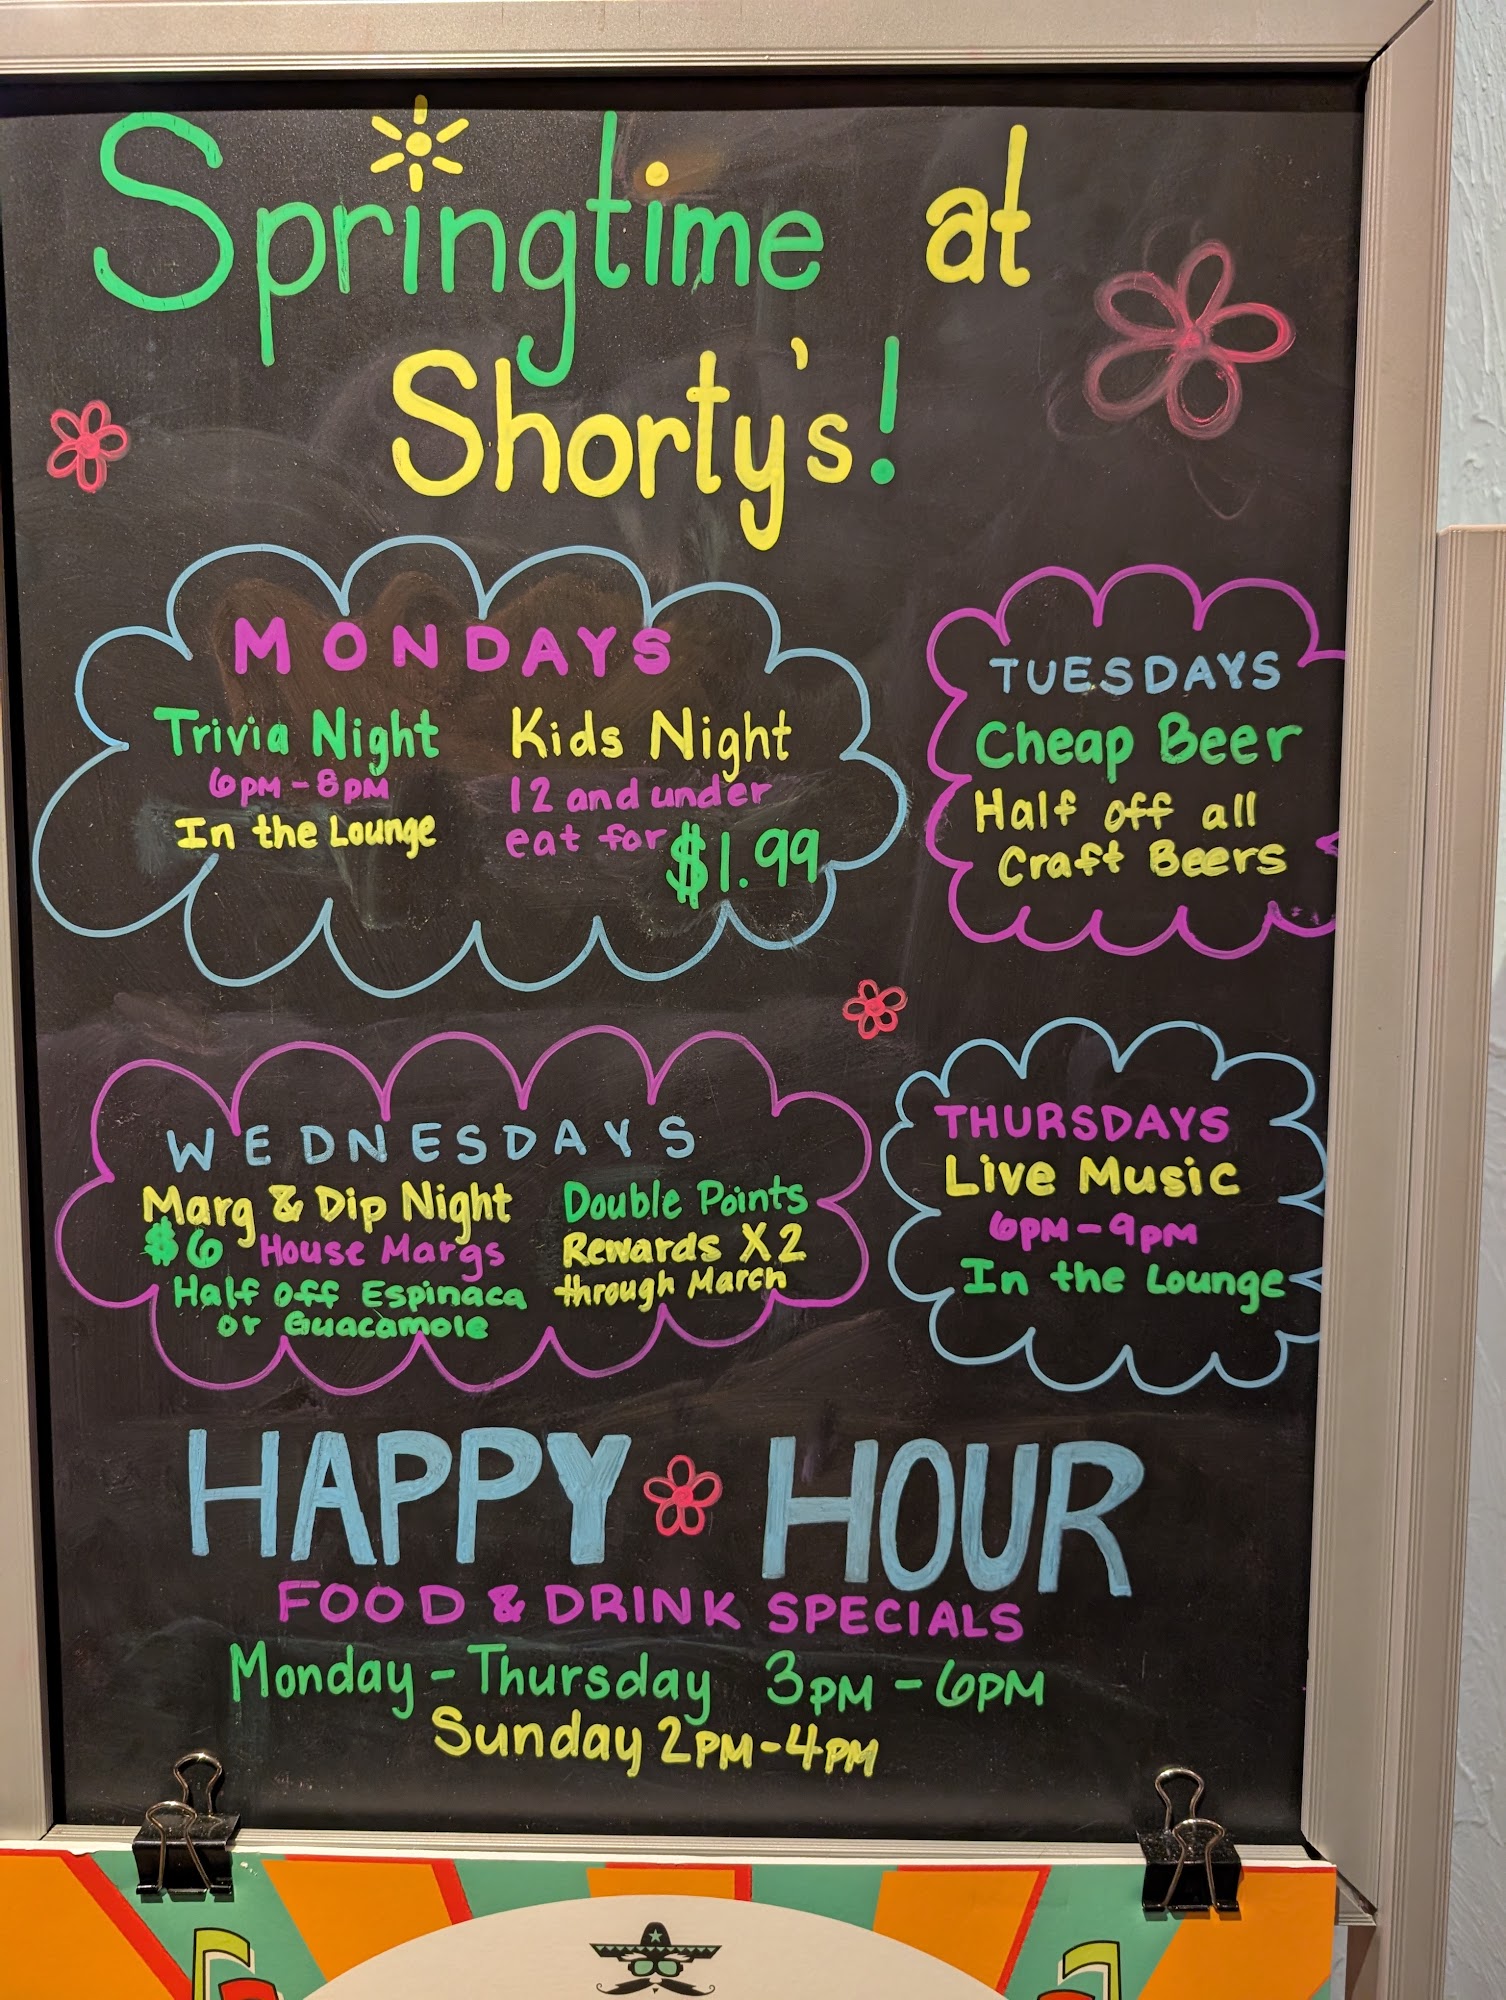 Springtime at
Shorty's!
MONDAYS
Trivia Night
6PM-8PM
In the Lounge
Kids Night
12 and under
eat for $1.99
TUESDAYS
Cheap Beer
Half off all
Craft Beers
WEDNESDAYS
Marg & Dip Night
$6 House Margs
Half off Espinaca
or Guacamole
Double Points
Rewards X2
through March
THURSDAYS
Live Music
6PM-9PM
In the Lounge
HAPPY HOUR
FOOD & DRINK SPECIALS
Monday - Thursday 3PM - 6PM
Sunday 2PM-4PM